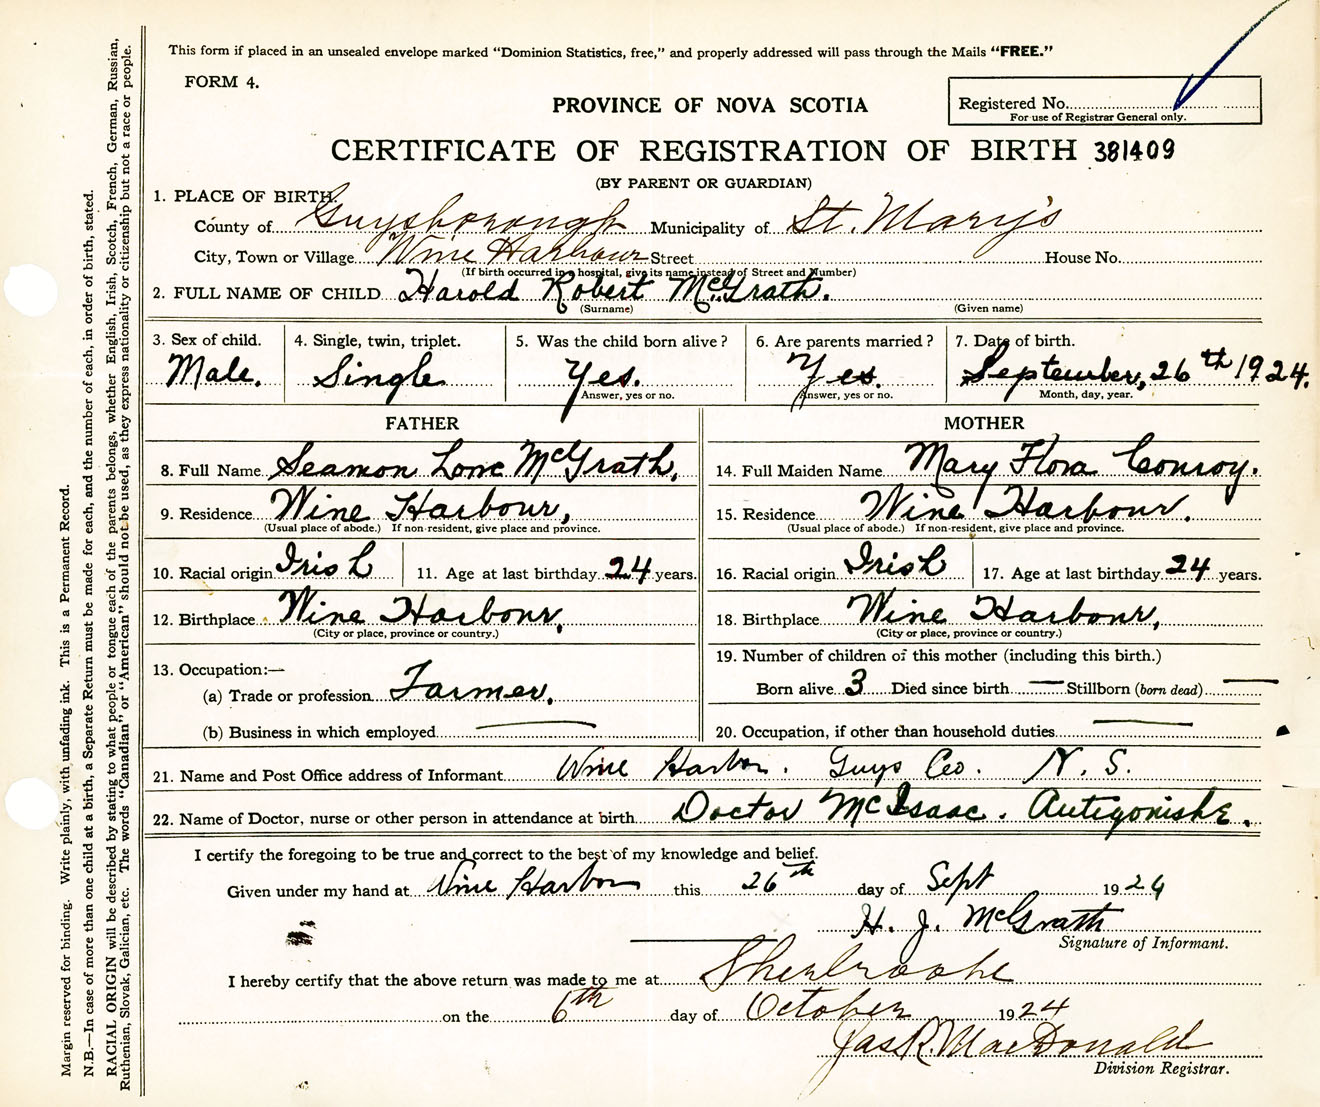 This form if placed in an unsealed envelope marked "Dominion Statistics, free," and properly addressed will pass through the Mails "FREE."
FORM 4.
Registered No.
For use of Registrar General only.
PROVINCE OF NOVA SCOTIA
CERTIFICATE OF REGISTRATION OF BIRTH 381409
(BY PARENT OR GUARDIAN)
1. PLACE OF BIRTH.
County of Guysborough Municipality of St. Mary's
City, Town or Village Wine Harbour Street House No.
(If birth occurred in a hospital, give its name instead of Street and Number)
2. FULL NAME OF CHILD Harold Robert McGrath.
(Surname) (Given name)
3. Sex of child. 4. Single, twin, triplet. 5. Was the child born alive? 6. Are parents married? 7. Date of birth.
Male. Single Yes. Yes. September, 26th 1924.
Answer, yes or no. Answer, yes or no. Month, day, year.
FATHER MOTHER
8. Full Name Seamon Lone McGrath, 14. Full Maiden Name Mary Flora Conroy.
9. Residence Wine Harbour, 15. Residence Wine Harbour.
(Usual place of abode.) If non-resident, give place and province. (Usual place of abode.) If non-resident, give place and province.
10. Racial origin Irish 11. Age at last birthday 24 years. 16. Racial origin Irish 17. Age at last birthday 24 years.
12. Birthplace Wine Harbour, 18. Birthplace Wine Harbour,
(City or place, province or country.) (City or place, province or country.)
13. Occupation:— 19. Number of children of this mother (including this birth.)
(a) Trade or profession Farmer, Born alive 3 Died since birth — Stillborn (born dead) —
(b) Business in which employed — 20. Occupation, if other than household duties —
21. Name and Post Office address of Informant Wine Harbor. Guys Co. N. S.
22. Name of Doctor, nurse or other person in attendance at birth Doctor McIsaac. Antigonishe.
I certify the foregoing to be true and correct to the best of my knowledge and belief.
Given under my hand at Wine Harbor this 26th day of Sept 1924
H. J. McGrath
Signature of Informant.
I hereby certify that the above return was made to me at Sherbrooke
on the 6th day of October 1924
Jas R. MacDonald
Division Registrar.
Margin reserved for binding. Write plainly, with unfading ink. This is a Permanent Record.
N.B.—In case of more than one child at a birth, a Separate Return must be made for each, and the number of each, in order of birth, stated.
RACIAL ORIGIN will be described by stating to what people or tongue each of the parents belongs, whether English, Irish, Scotch, French, German, Russian,
Ruthenian, Slovak, Galician, etc. The words "Canadian" or "American" should not be used, as they express nationality or citizenship but not a race or people.